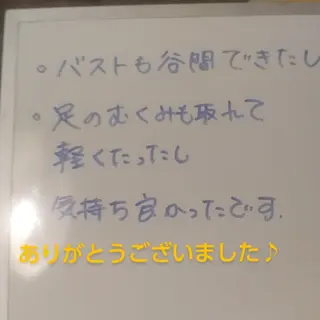 。バストも谷間できたし
。足のむくみも取れて
軽くなったし
気持ち良かったです.
ありがとうございました♪